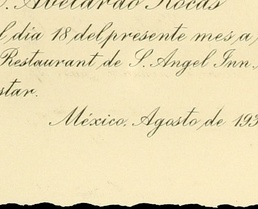 . Abelardo Rocas
l dia 18 del presente mes, a
Restaurant de S. Angel Inn.
star.
México, Agosto de 193